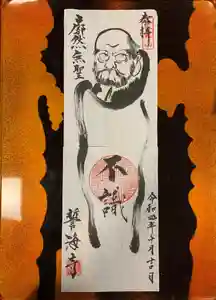 奉拝
廓然無聖
不識
令和四年十月十一日
誓海寺